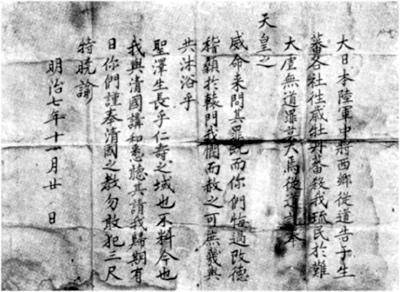 大日本陸軍中將西鄉從道告于生
蕃各社徃歲牡丹蕃殺我琉民於難
大虐無道罪莫大焉從道奉
天皇之
威命来問其罪既而你們悔過改德
稽顙於轅門我憫而赦之可庶幾與
共沐浴乎
聖澤生長乎仁壽之域也不料今也
我與清國講和悉聽其請我歸期有
日你們謹奉清國之教勿敢犯三尺
特曉諭
明治七年十一月廿日